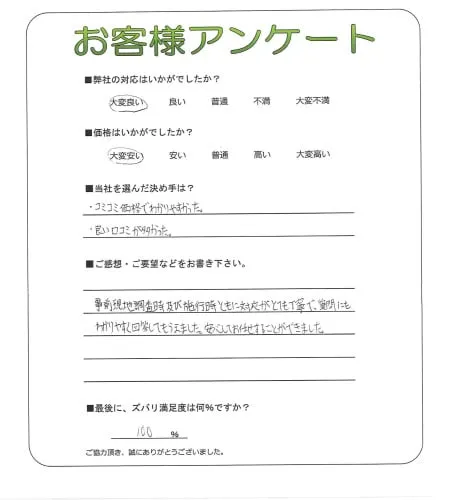 お客様アンケート
■弊社の対応はいかがでしたか?
大変良い 良い 普通 不満 大変不満
■価格はいかがでしたか?
大変安い 安い 普通 高い 大変高い
■当社を選んだ決め手は?
・コミコミ価格でわかりやすかった。
・良い口コミが多かった。
■ご感想・ご要望などをお書き下さい。
事前現地調査時及び施行時ともに対応がとても丁寧で、質問にも
わかりやすく回答してもらえました。安心してお任せすることができました。
■最後に、ズバリ満足度は何%ですか?
100 %
ご協力頂き、誠にありがとうございました。